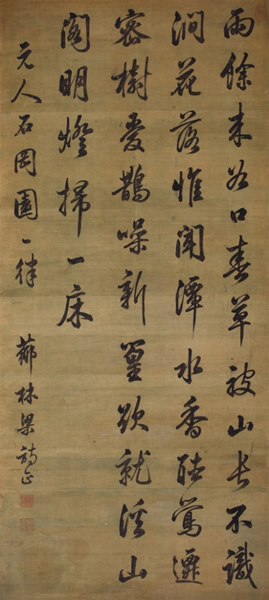 雨餘來谷口春草被山長不識
澗花落惟聞潭水香晴鶯遷
密樹鵲噪新篁欲就溪山
閣明燈掃一床
元人石岡園一律 薌林梁詩正